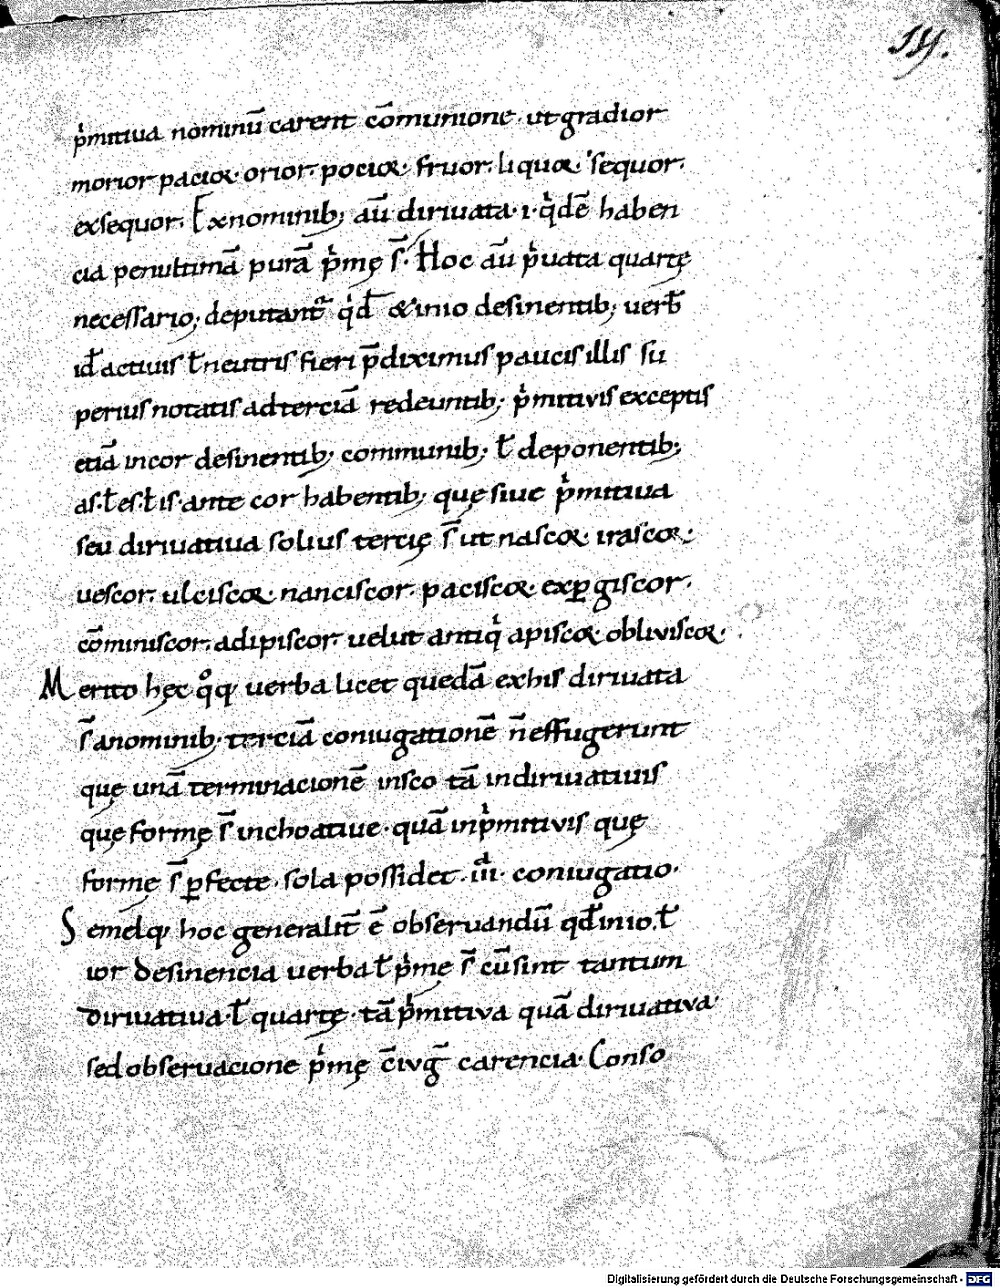 19.
p̍mitiua nominū carent cōmunione. ut gradior
morior pacior. orior. pocior. fruor. liquor sequor.
exsequor. Exnominib; aū diriuata .i. q̍dē haben
cia penultimā purā p̍mę s̄. Hoc aū p̍uata quartę
necessario; deputant᷑ q̍d &inio desinentib; uerb̄
id̄ actiuis ł neutris fieri p̄diximus paucis illis su
perius notatis adterciā redeuntib; p̍mitivis exceptis
etiā incor desinentib; communib; ł deponentib;
as. ł es. ł is. ante cor habentib; quę siue p̍mitiua
seu diriuatiua solius tercię s̄ ut nascor. irascor.
uescor. ulciscor. nanciscor. paciscor. exꝑgiscor.
cōminiscor. adipiscor uelut antiq̍ apiscor obliviscor.
Merito hęc q̊q; uerba licet quedā exhis diriuata
s̄ anominib; terciā coniugationē n̄ effugerunt
quę unā terminacionē insco tā indiriuatiuis
quę formę s̄ inchoatiue. quā inp̍mitivis quę
formę s̄ ꝑfecte. sola possidet .iiiᵃ. coniugatio.
Semelq; hoc generalit̄ ē obseruandū qd̄ inio. ł
ior desinencia uerba ł p̍me s̄ cū sint tantum
diriuatiua. ł quartę. tā p̍mitiva quā diriuativa.
sed obseruacione p̍mę c̄iug̅ carencia. Conso
Digitalisierung gefördert durch die Deutsche Forschungsgemeinschaft - DFG